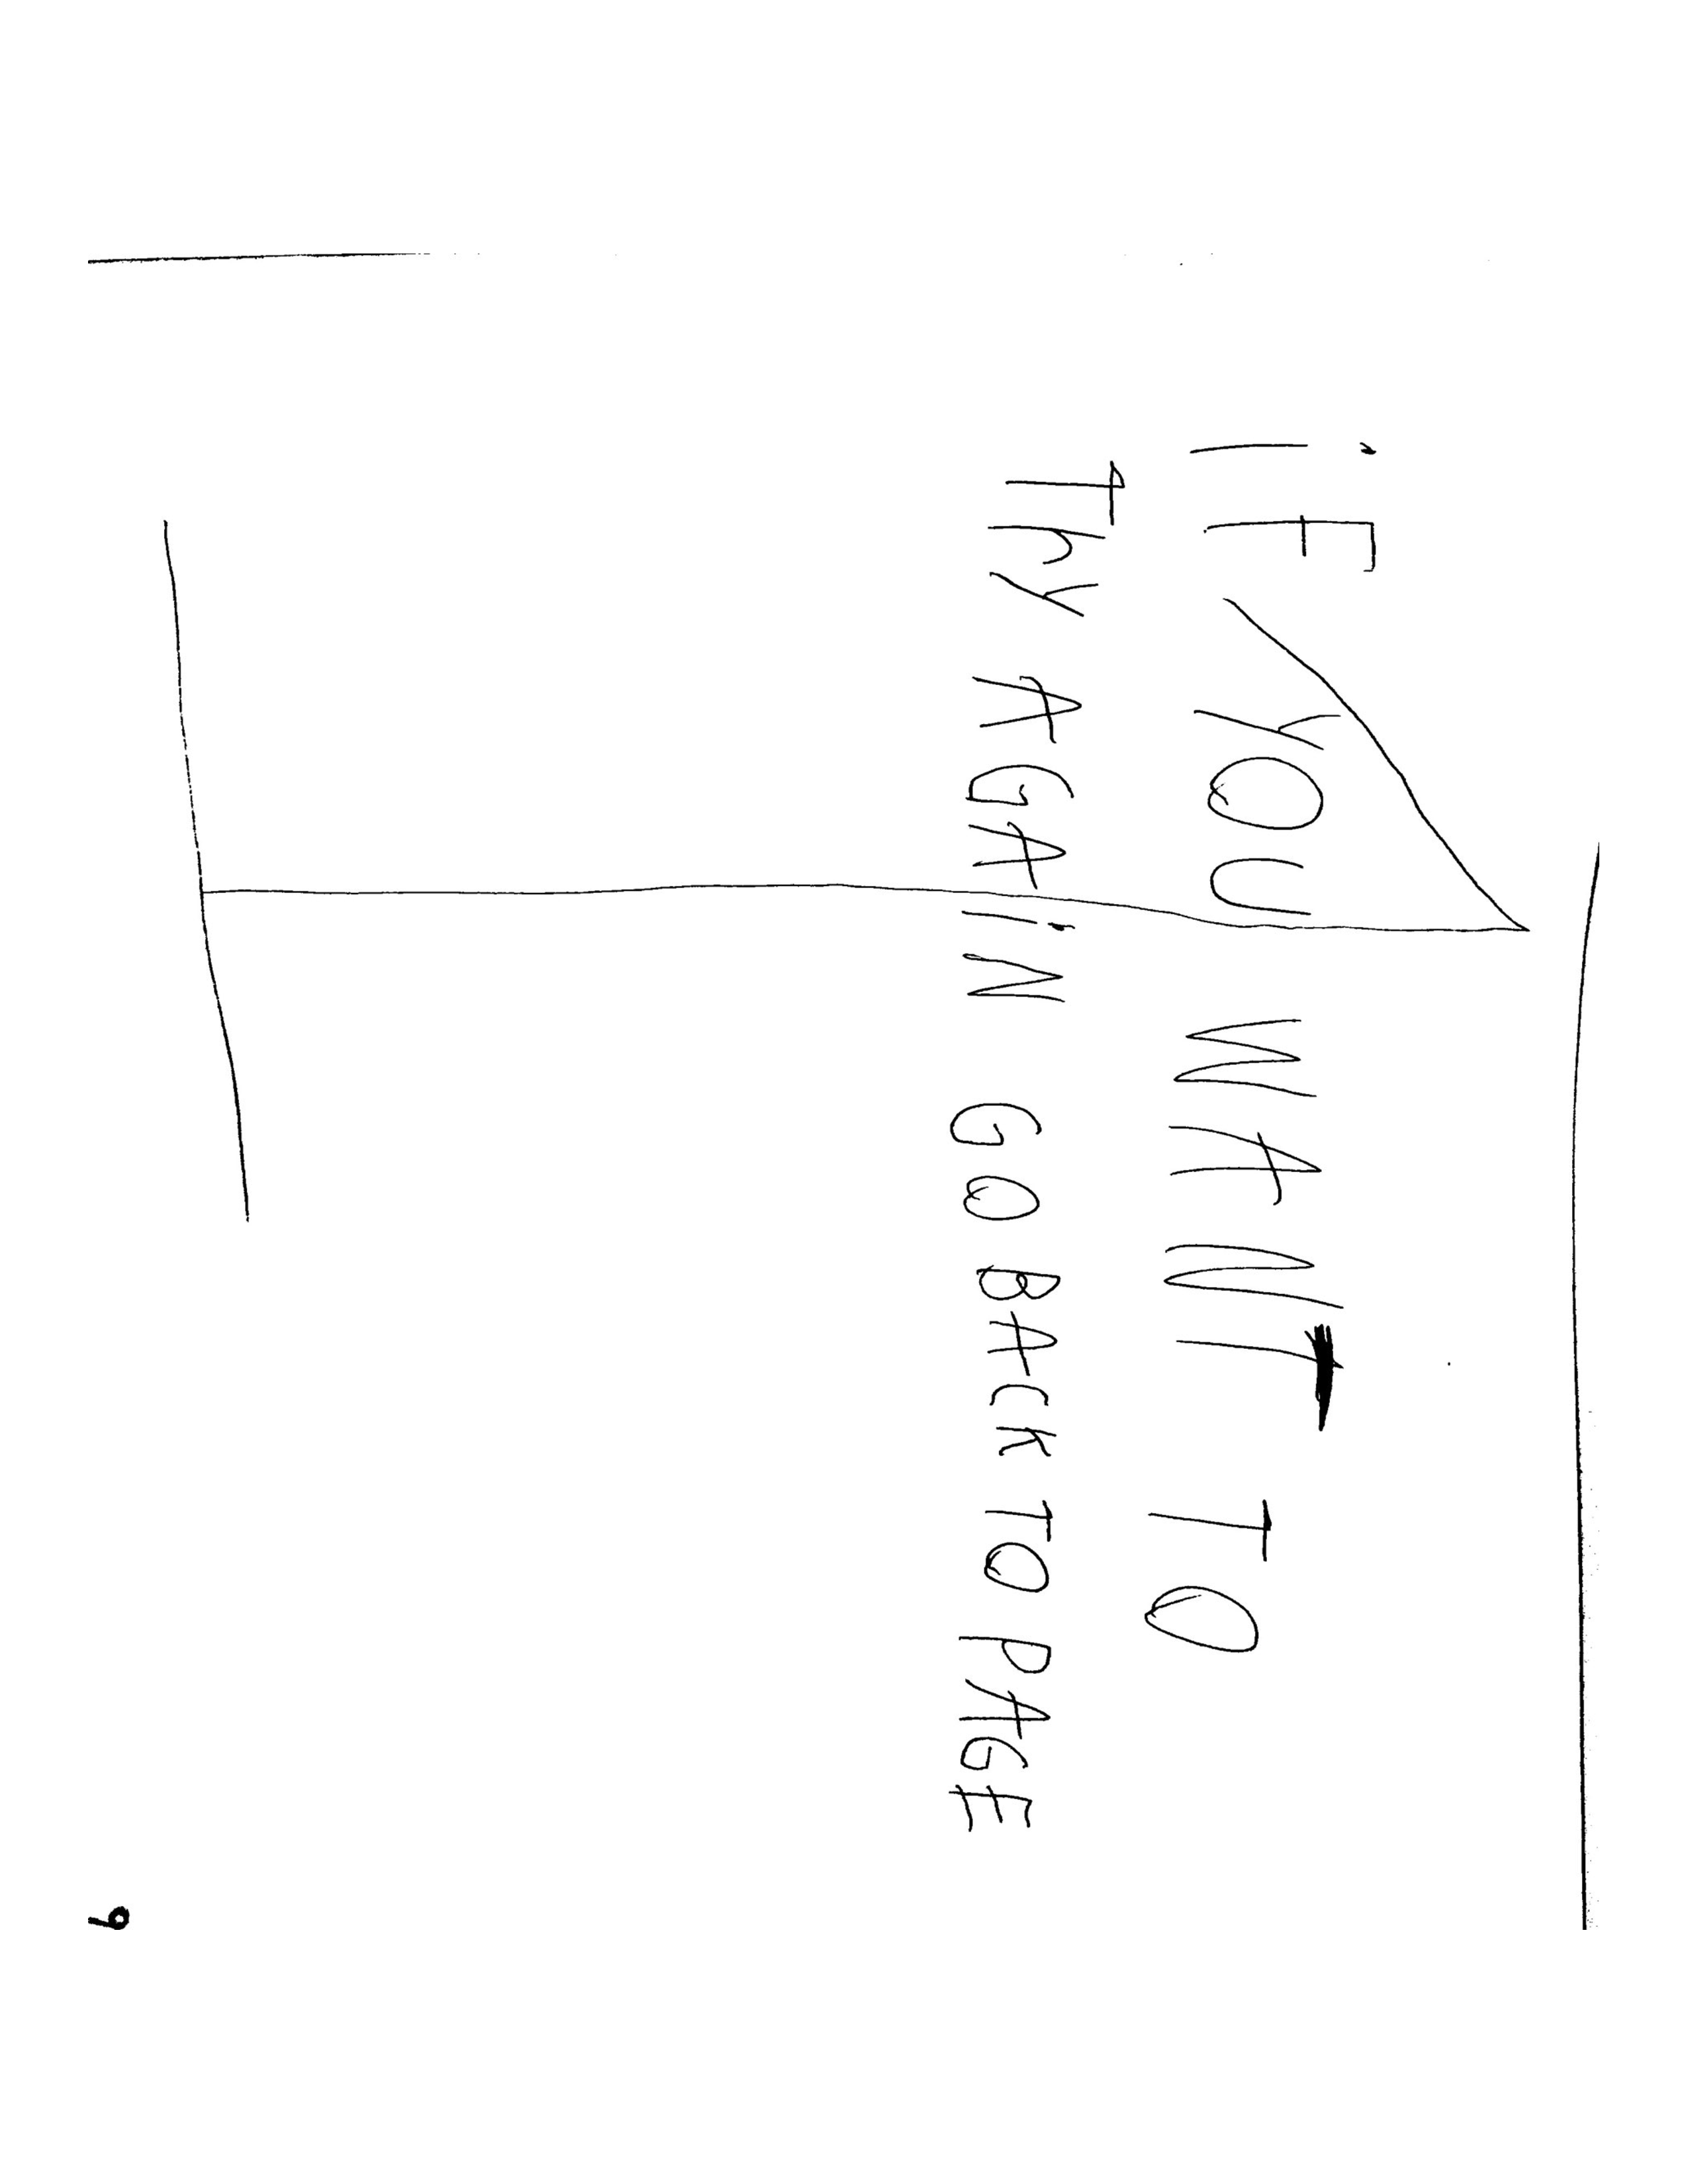 iF YOU WANT TO
TrY AGAiN GO BACK TO PAGE
1
9